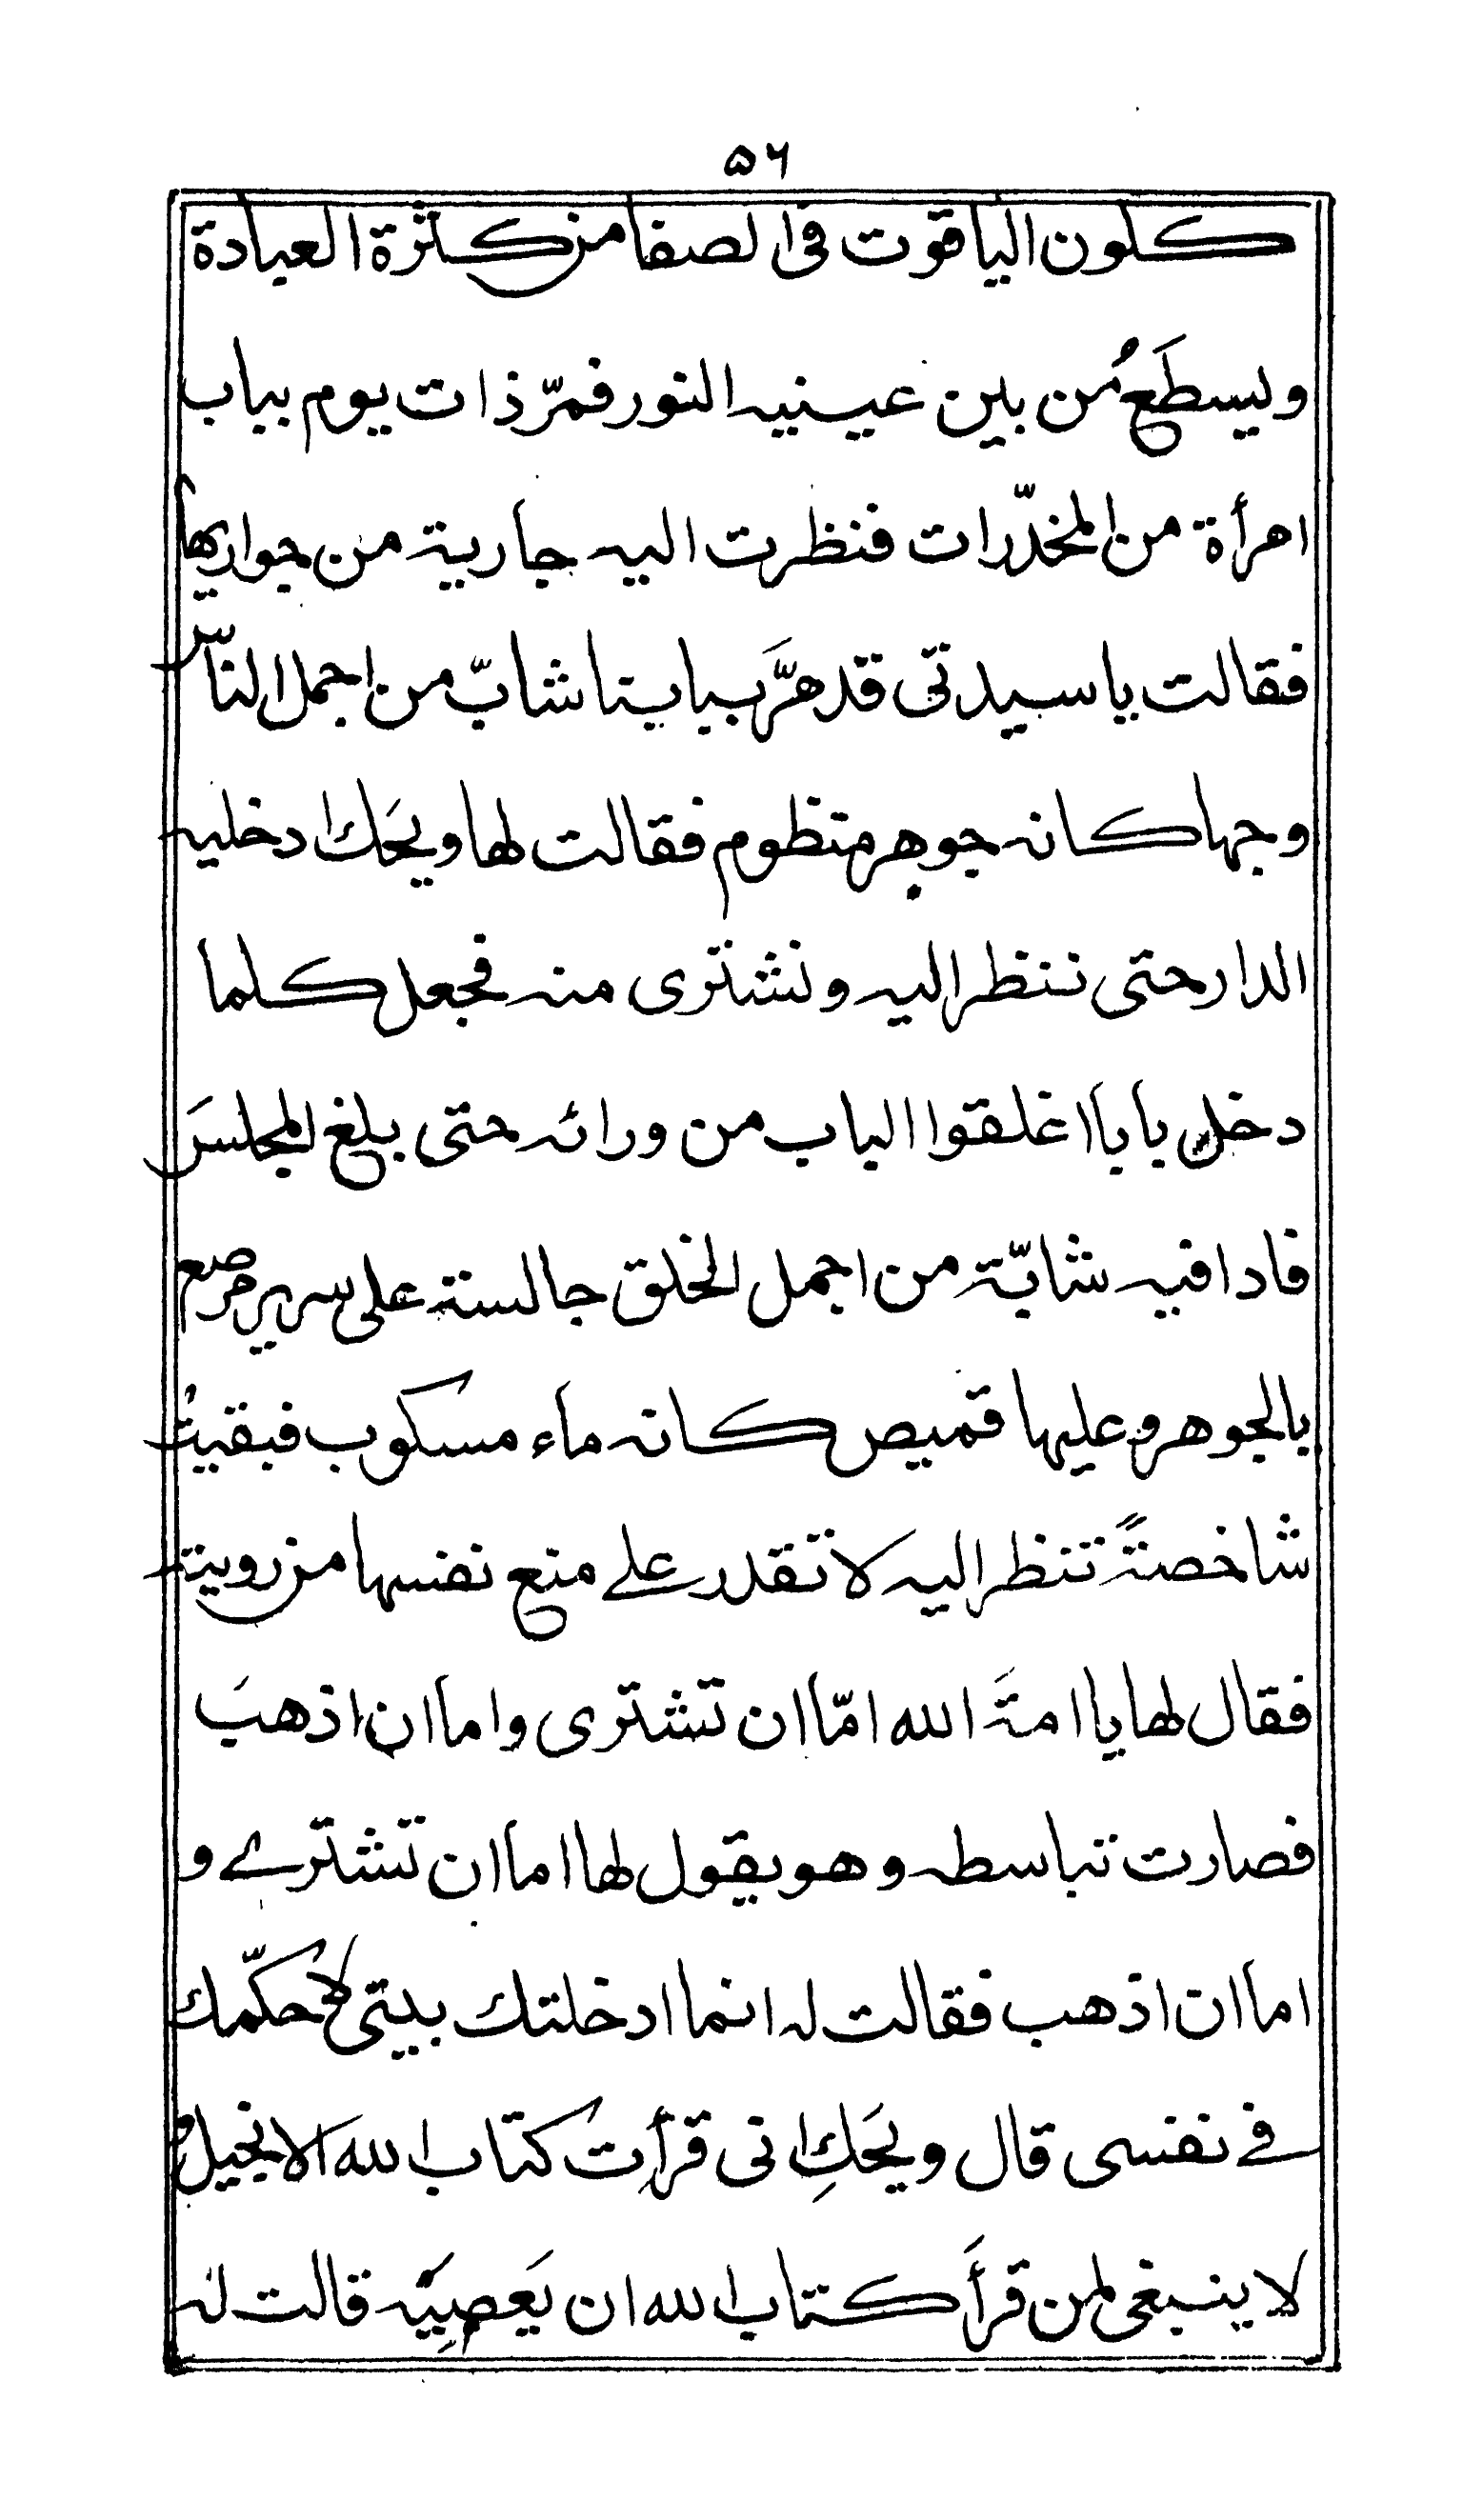 ٥٦
كلون الياقوت فى الصفا من كثرة العبادة
ويسطَعُ من بين عينيه النور فمرّ ذات يوم بباب
امرأة من المخدّرات فنظرت اليه جارية من جواريها
فقالت يا سيدتى قد مرَّ ببابنا شابّ من اجمل النّاس
وجها كانه جوهر منظوم فقالت لها ويحَك ادخليه
الدار حتى ننظر اليه ونشترى منه فجعل كلما
دخل بابا اغلقوا الباب من ورائه حتى بلغ المجلسَ
فاذا فيه شابّة من اجمل الخلق جالسة على سرير مرصع
بالجوهر وعليها قميص كانه ماء مسكوب فبقيت
شاخصةً تنظر اليه لا تقدر على منع نفسها من رويته
فقال لها يا امةَ الله امّا ان تشترى واما ان اذهبَ
فصارت تباسطه وهو يقول لها اما ان تشترے و
اما ان اذهب فقالت له انما ادخلتك بيتى لاُحكّمك
فے نفسى قال ويحَكِ انى قرأتُ كتاب اللهَ الانجيل و
لا ينبغى لمن قرأَ كتاب الله ان يَعصِيَه قالت له